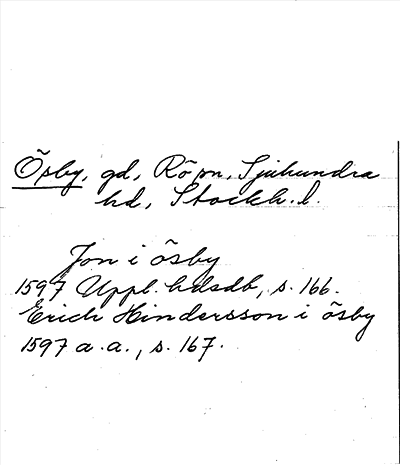 Ösby, gd, Rö sn, Sjuhundra
hd, Stockh. l.
Jon i ösby
1597 Uppl. hdsdb, s. 166.
Erich Hindersson i ösby
1597 a. a., s. 167.